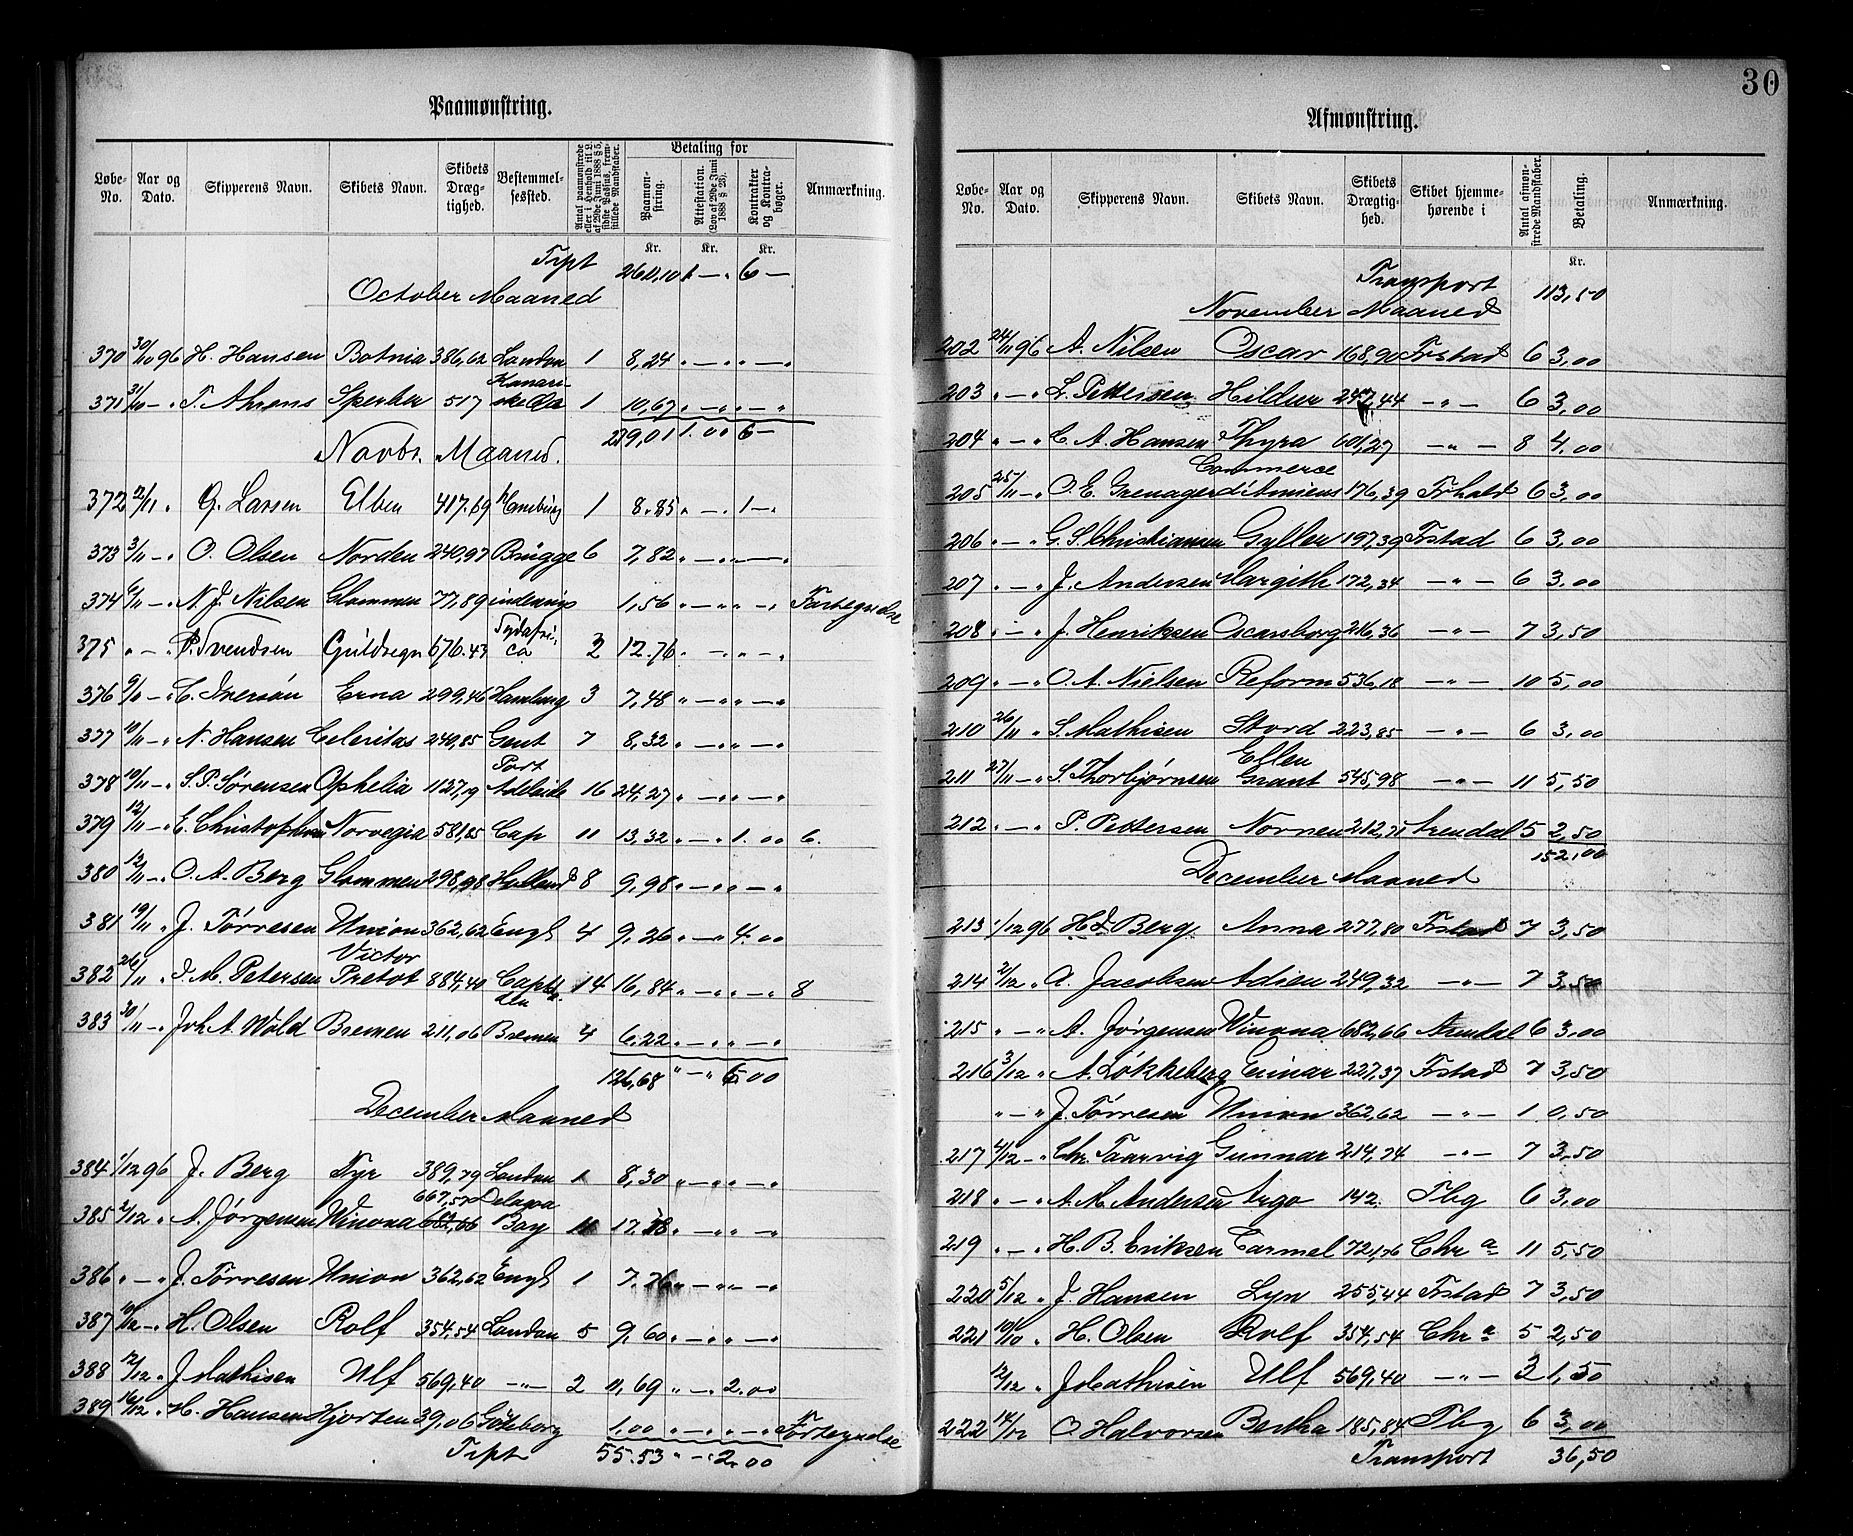 30
Paamønstring.
Løbe-No. Aar og Dato. Skipperens Navn. Skibets Navn. Skibets Dræg-tighed. Bestemmel-sessted. Antal paamønstrede eller i Henhold til L. af 29de Juni 1888 § 5, sidste Passus, frem-stillede Mandskaber. Betaling for Paamøn-string. Attestation. (Lov af 29de Juni 1888 § 23). Kontrakter og Kontra-bøger. Anmærkning.
Kr. Kr. Kr.
Tspt 260,10 1 — " 6 —
October Maaned
370 30/10 96 H. Hansen Botnia 386,62 London 1 8,24 " — " " — "
371 31/10 — " T. Ahrens Sperber 517 Kanari-ske Øer 1 10,67 " — " " — "
279,01 1.00 6 —
Novbr. Maaned.
372 2/11 " G. Larsen Elben 417.69 Hamburg 1 8.85 " — . 1 — "
373 3/11 — " O. Olsen Norden 240,97 Brügge 6 7,82 " — " " — "
374 6/11 — " N. J. Nilsen Glommen 77,89 indenrigs 1,56 " — " " — " Fortegnelse
375 " — " P. Svendsen Guldregn 676.43 Sydafri-ca 2 12.76 " — " " — "
376 9/11 — " C. Iversøn Erna 299,46 Hamburg 3 7,48 " — " " — "
377 10/11 — " N. Hansen Celeritas 240,85 Gent 7 8,32 " — " " — "
378 10/11 — " S. P. Sørensen Ophelia 1127,19 Port Adelaide 16 24,27 " — " " — "
379 12/11 — " E. Christophersen Norvegia 581,85 Cap 11 13,32 " — " 1.00 6.
380 12/11 — " O. A. Berg Glommen 298,98 Holland 8 9,98 " — " " — "
381 19/11 " J. Tørresen Union 362,62 Engl 4 9,26 " — " 4.00
382 26/11 " J. M. Petersen Victor Pretot 884,40 14 16,84 " — " " — " 8
383 30/11 — " Joh A. Wold Bremen 211,06 Bremen 4 6.22 " — " " — "
126,68 " — " 6.00
December Maaned
384 1/12 96 J. Berg Nyr 389,79 London 1 8,30 " — " " — "
385 2/12 " A. Jørgensen Winona 667,57 682,66 Delawa Bay 11 17.38 " — " " — "
386 " — " J. Tørresen Union 362,62 Engl 1 7.76 " — " " — "
387 10/12 — " H. Olsen Rolf 354,54 London 5 9,60 " — " " — "
388 12/12 " J. Mathisen Ulf 569,40 — " — 2 11,69 " — " 2.00
389 16/12 " H. Hansen Hjorten 39,06 Göteborg 1,00 " — " " — " Fortegnelse
Tspt 55.53 " — " 2.00
Afmønstring.
Løbe-No. Aar og Dato. Skipperens Navn. Skibets Navn. Skibets Drægtig-hed. Skibet hjemme-hørende i Antal afmøn-strede Mandskaber. Betaling. Anmærkning.
Kr.
Transport 113,50
November Maaned
202 24/11 96 A. Nilsen Oscar 168,90 Frstad 6 3,00
203 " — " L. Pettersen Hildur 247,44 — " — 6 3,00
204 " — " C. A. Hansen Thyra 601,27 — " — 8 4.00
205 25/11 — " O. E. Grenager Commerce d'Amiens 176,39 Frhald 6 3,00
206 " — " G. S. Christiansen Gyller 197,39 Frstad 6 3,00
207 " — " J. Andersen Margith 172,34 — " — 6 3.00
208 " — " J. Henriksen Oscarsborg 216,36 — " — 7 3,50
209 " — " O. A. Nielsen Reform 536,18 — " — 10 5,00
210 26/11 " S. Mathisen Stord 223,85 — " — 6 3,00
211 27/11 — " S. Thorbjørnsen Ellen Grant 545,98 — " — 11 5,50
212 " — " P. Pettersen Nornen 212,71 Arendal 5 2,50
152,00
December Maaned
213 1/12 96 H. J. Berg Anna 277,80 Frstad 7 3,50
214 2/12 " A. Jacobsen Adien 249,32 — " — 7 3,50
215 " — " A. Jørgensen Winona 682,66 Arendal 6 3,00
216 3/12 " A. Løkkeberg Einar 227,37 Frstad 7 3,50
" — " J. Tørresen Union 362,62 — " — 1 0,50
217 4/12 — " Chr. Taarvig Gunnar 214,74 — " — 7 3,50
218 " — " A. M. Andersen Argo 142. Tbg 6 3,00
219 " — " H. B. Eriksen Carmel 721,76 Chr a 11 5,50
220 5/12 " J. Hansen Lyn 255,44 Frstad 7 3,50
221 10/10 " H. Olsen Rolf 354,54 Chr a 5 2,50
12/12 " J. Mathisen Ulf 569,40 — " — 3 1,50
222 14/12 O. Halvorsen Bertha 185,84 Tbg 6 3,00
Transport 36,50